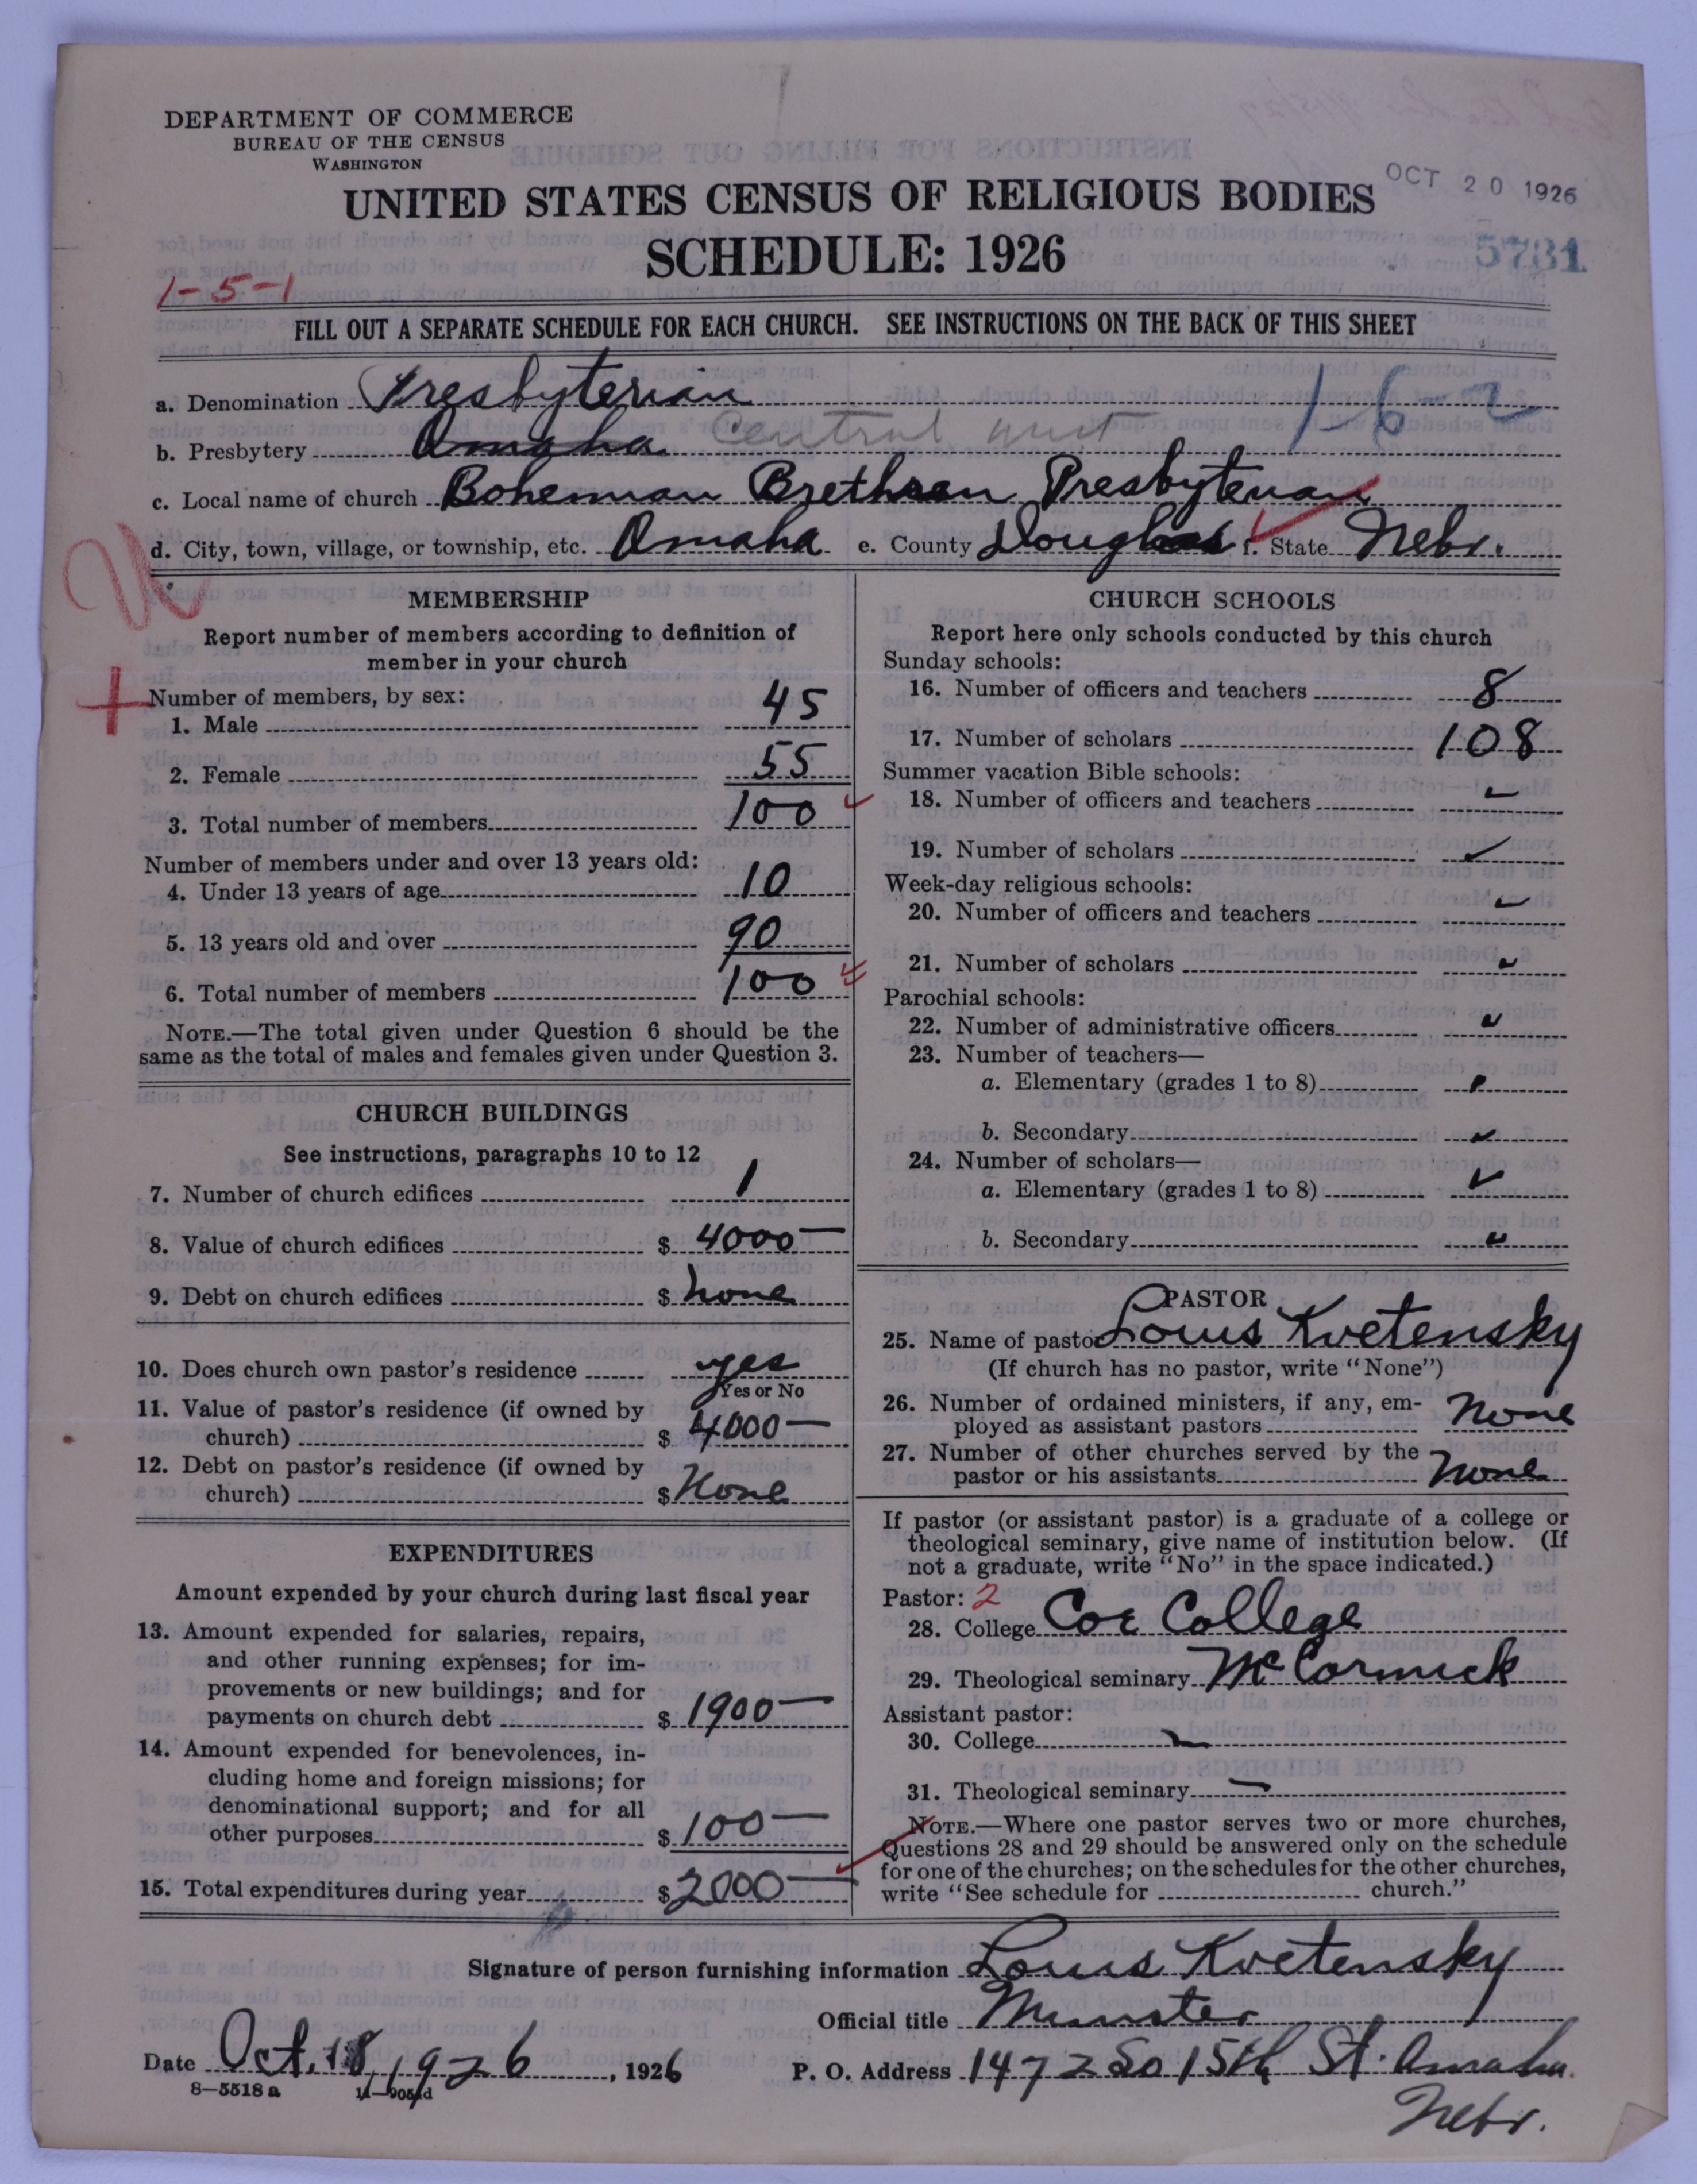 DEPARTMENT OF COMMERCE
BUREAU OF THE CENSUS
WASHINGTON
OCT 20 1926
UNITED STATES CENSUS OF RELIGIOUS BODIES
SCHEDULE: 1926
5731
1-5-1
FILL OUT A SEPARATE SCHEDULE FOR EACH CHURCH. SEE INSTRUCTIONS ON THE BACK OF THIS SHEET
a. Denomination Presbyterian 1-6-2
b. Presbytery Omaha Central west
c. Local name of church Bohemian Brethren Presbyterian
d. City, town, village, or township, etc. Omaha e. County Douglas f. State Nebr.
MEMBERSHIP
Report number of members according to definition of
member in your church
Number of members, by sex:
1. Male 45
2. Female 55
3. Total number of members 100
Number of members under and over 13 years old:
4. Under 13 years of age 10
5. 13 years old and over 90
6. Total number of members 100
NOTE.—The total given under Question 6 should be the
same as the total of males and females given under Question 3.
CHURCH BUILDINGS
See instructions, paragraphs 10 to 12
7. Number of church edifices 1
8. Value of church edifices $ 4000—
9. Debt on church edifices $ none
10. Does church own pastor's residence yes
Yes or No
11. Value of pastor's residence (if owned by
church) $ 4000—
12. Debt on pastor's residence (if owned by
church) $ None
EXPENDITURES
Amount expended by your church during last fiscal year
13. Amount expended for salaries, repairs,
and other running expenses; for im-
provements or new buildings; and for
payments on church debt $ 1900—
14. Amount expended for benevolences, in-
cluding home and foreign missions; for
denominational support; and for all
other purposes $ 100—
15. Total expenditures during year $ 2000—
CHURCH SCHOOLS
Report here only schools conducted by this church
Sunday schools:
16. Number of officers and teachers 8
17. Number of scholars 108
Summer vacation Bible schools:
18. Number of officers and teachers
19. Number of scholars
Week-day religious schools:
20. Number of officers and teachers
21. Number of scholars
Parochial schools:
22. Number of administrative officers
23. Number of teachers—
a. Elementary (grades 1 to 8)
b. Secondary
24. Number of scholars—
a. Elementary (grades 1 to 8)
b. Secondary
PASTOR
25. Name of pastor Louis Kvetensky
(If church has no pastor, write "None")
26. Number of ordained ministers, if any, em-
ployed as assistant pastors None
27. Number of other churches served by the
pastor or his assistants None
If pastor (or assistant pastor) is a graduate of a college or
theological seminary, give name of institution below. (If
not a graduate, write "No" in the space indicated.)
Pastor: 2
28. College Coe College
29. Theological seminary McCormick
Assistant pastor:
30. College
31. Theological seminary —
NOTE.—Where one pastor serves two or more churches,
Questions 28 and 29 should be answered only on the schedule
for one of the churches; on the schedules for the other churches,
write "See schedule for church."
Signature of person furnishing information Louis Kvetensky
Official title Minister
Date Oct. 18, 1926, 1926 P. O. Address 1472 So 15th St. Omaha
Nebr.
8—5518 a